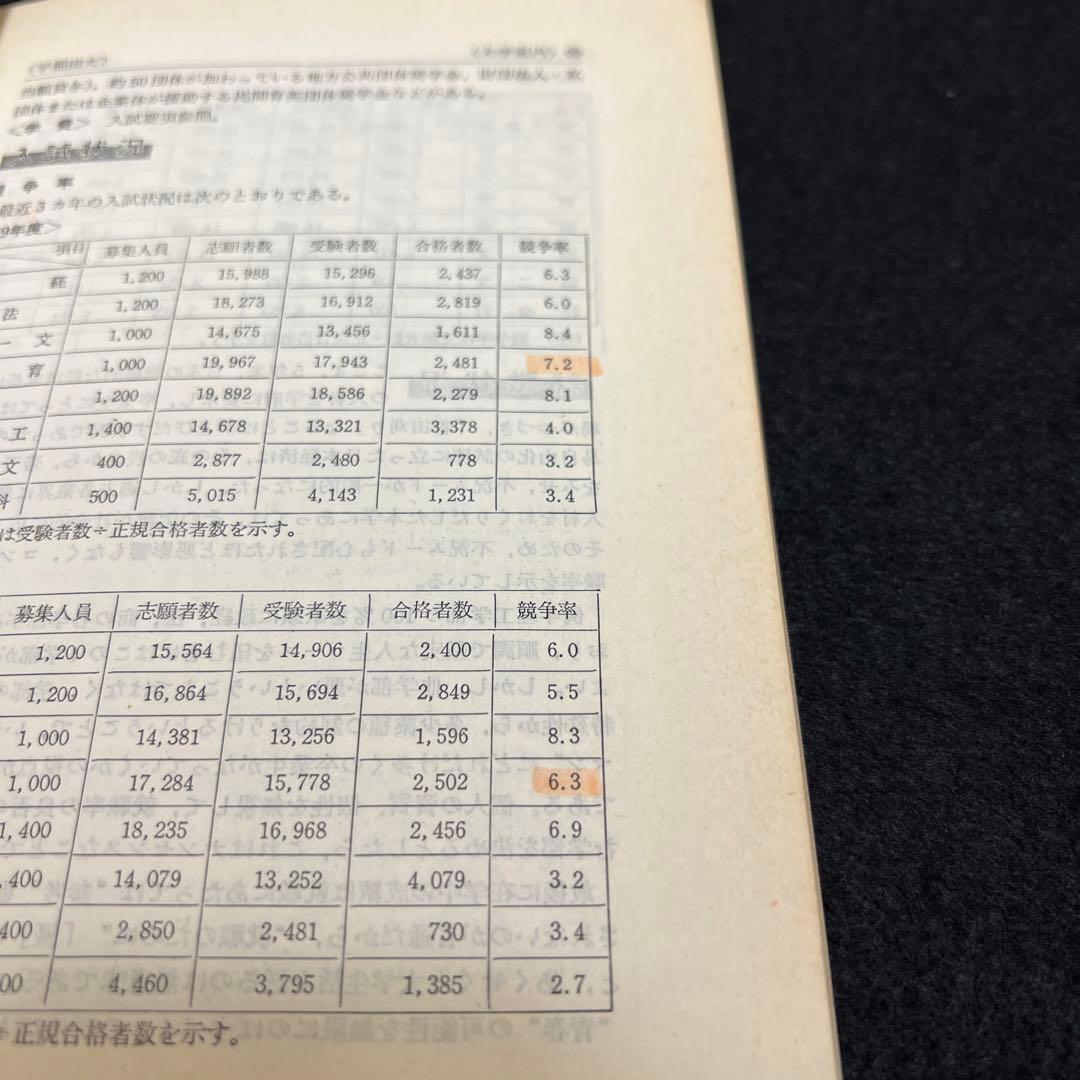 (早稲田大)
当額貸与)，約50団体が加わっている地方公共団体奨学金，財団法人・政
団体または企業体が援助する民間育英団体奨学金などがある。
<学 費> 入試要項参照。
入試状況
争率
最近3ヵ年の入試状況は次のとおりである。
9年度>
項目 募集人員 志願者数 受験者数 合格者数 競争率
経 1,200 15,988 15,296 2,437 6.3
法 1,200 18,273 16,912 2,819 6.0
一文 1,000 14,675 13,456 1,611 8.4
育 1,000 19,967 17,943 2,481 7.2
1,200 19,892 18,586 2,279 8.1
工 1,400 14,678 13,321 3,378 4.0
文 400 2,877 2,480 778 3.2
科 500 5,015 4,143 1,231 3.4
は受験者数÷正規合格者数を示す。
募集人員 志願者数 受験者数 合格者数 競争率
1,200 15,564 14,906 2,400 6.0
1,200 16,864 15,694 2,849 5.5
1,000 14,381 13,256 1,596 8.3
1,000 17,284 15,778 2,502 6.3
1,400 18,235 16,968 2,456 6.9
,400 14,079 13,252 4,079 3.2
400 2,850 2,481 730 3.4
00 4,460 3,795 1,385 2.7
÷正規合格者数を示す。